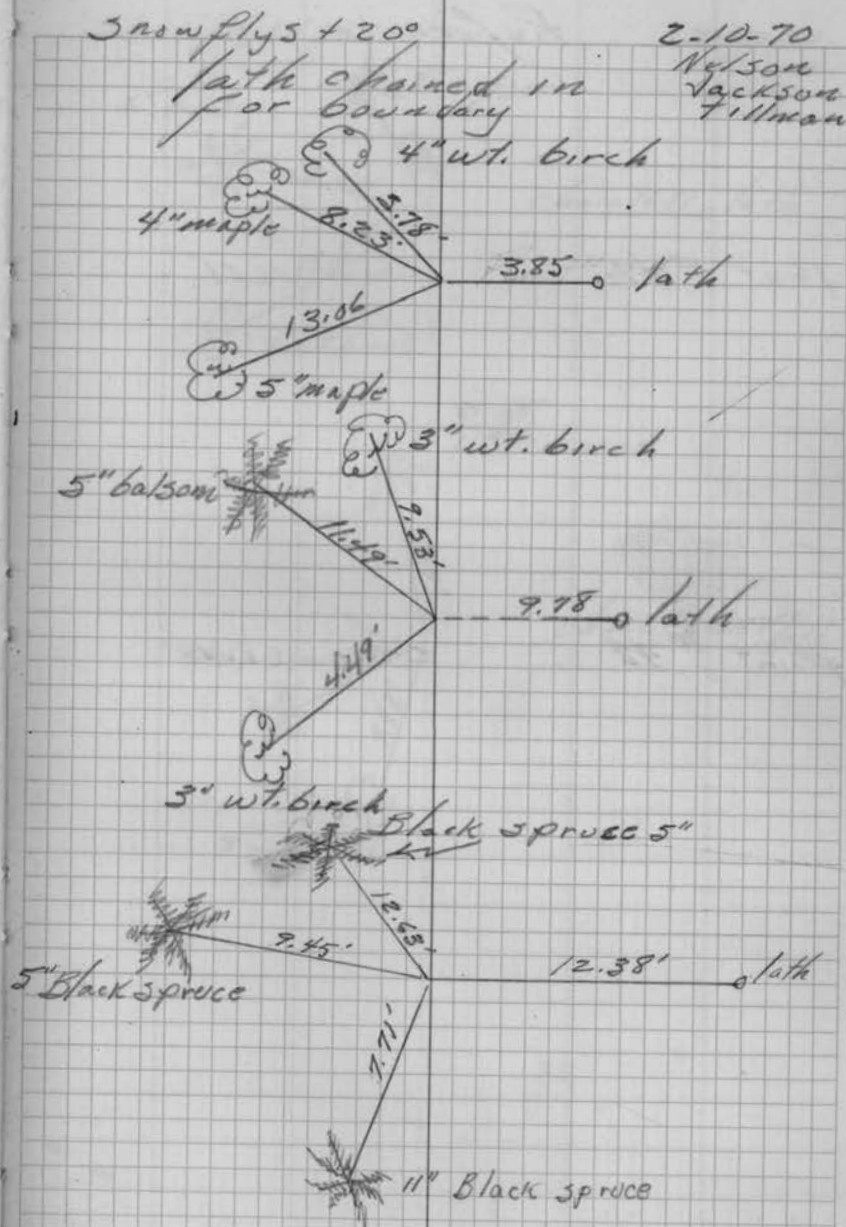 Snow flys + 20°
2-10-70
Nelson
Jackson
Tillman
lath chained in
for boundary
4" wt. birch
4" maple
8.23'
5.78'
3.85
lath
13.06
5" maple
3" wt. birch
5" balsom
11.49'
9.53'
9.78
lath
4.49'
3" wt. birch
Black spruce 5"
12.63'
9.45'
12.38'
lath
5" Black spruce
7.71'
11" Black spruce